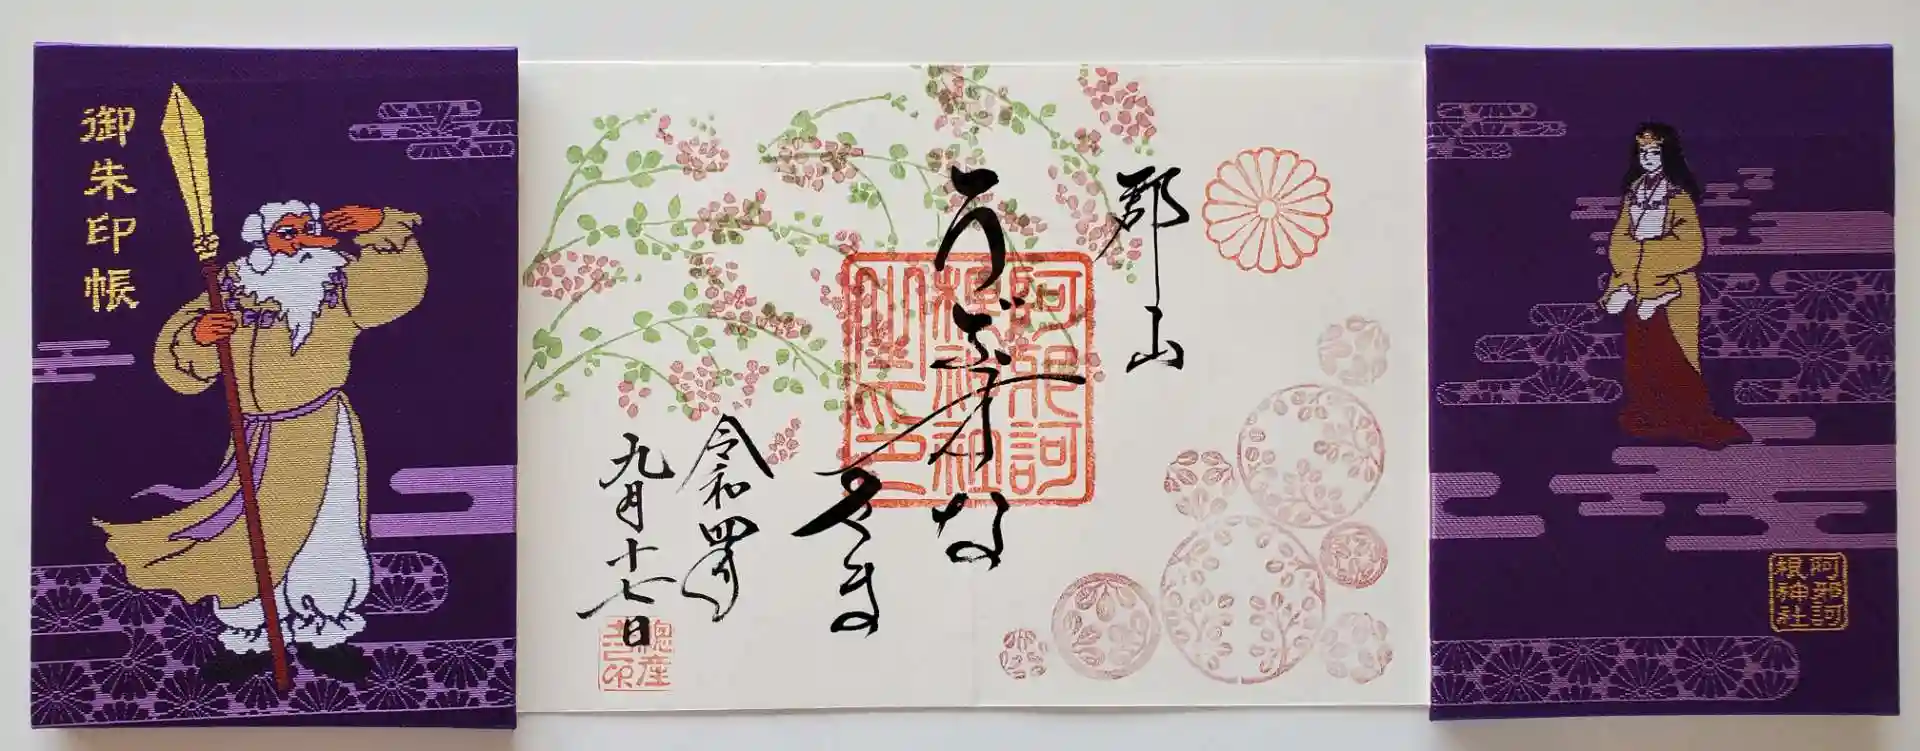 御朱印帳
郡山
うぶすな
さま
阿邪訶
根神社
令和四年
九月十七日
總産
阿邪訶
根神社